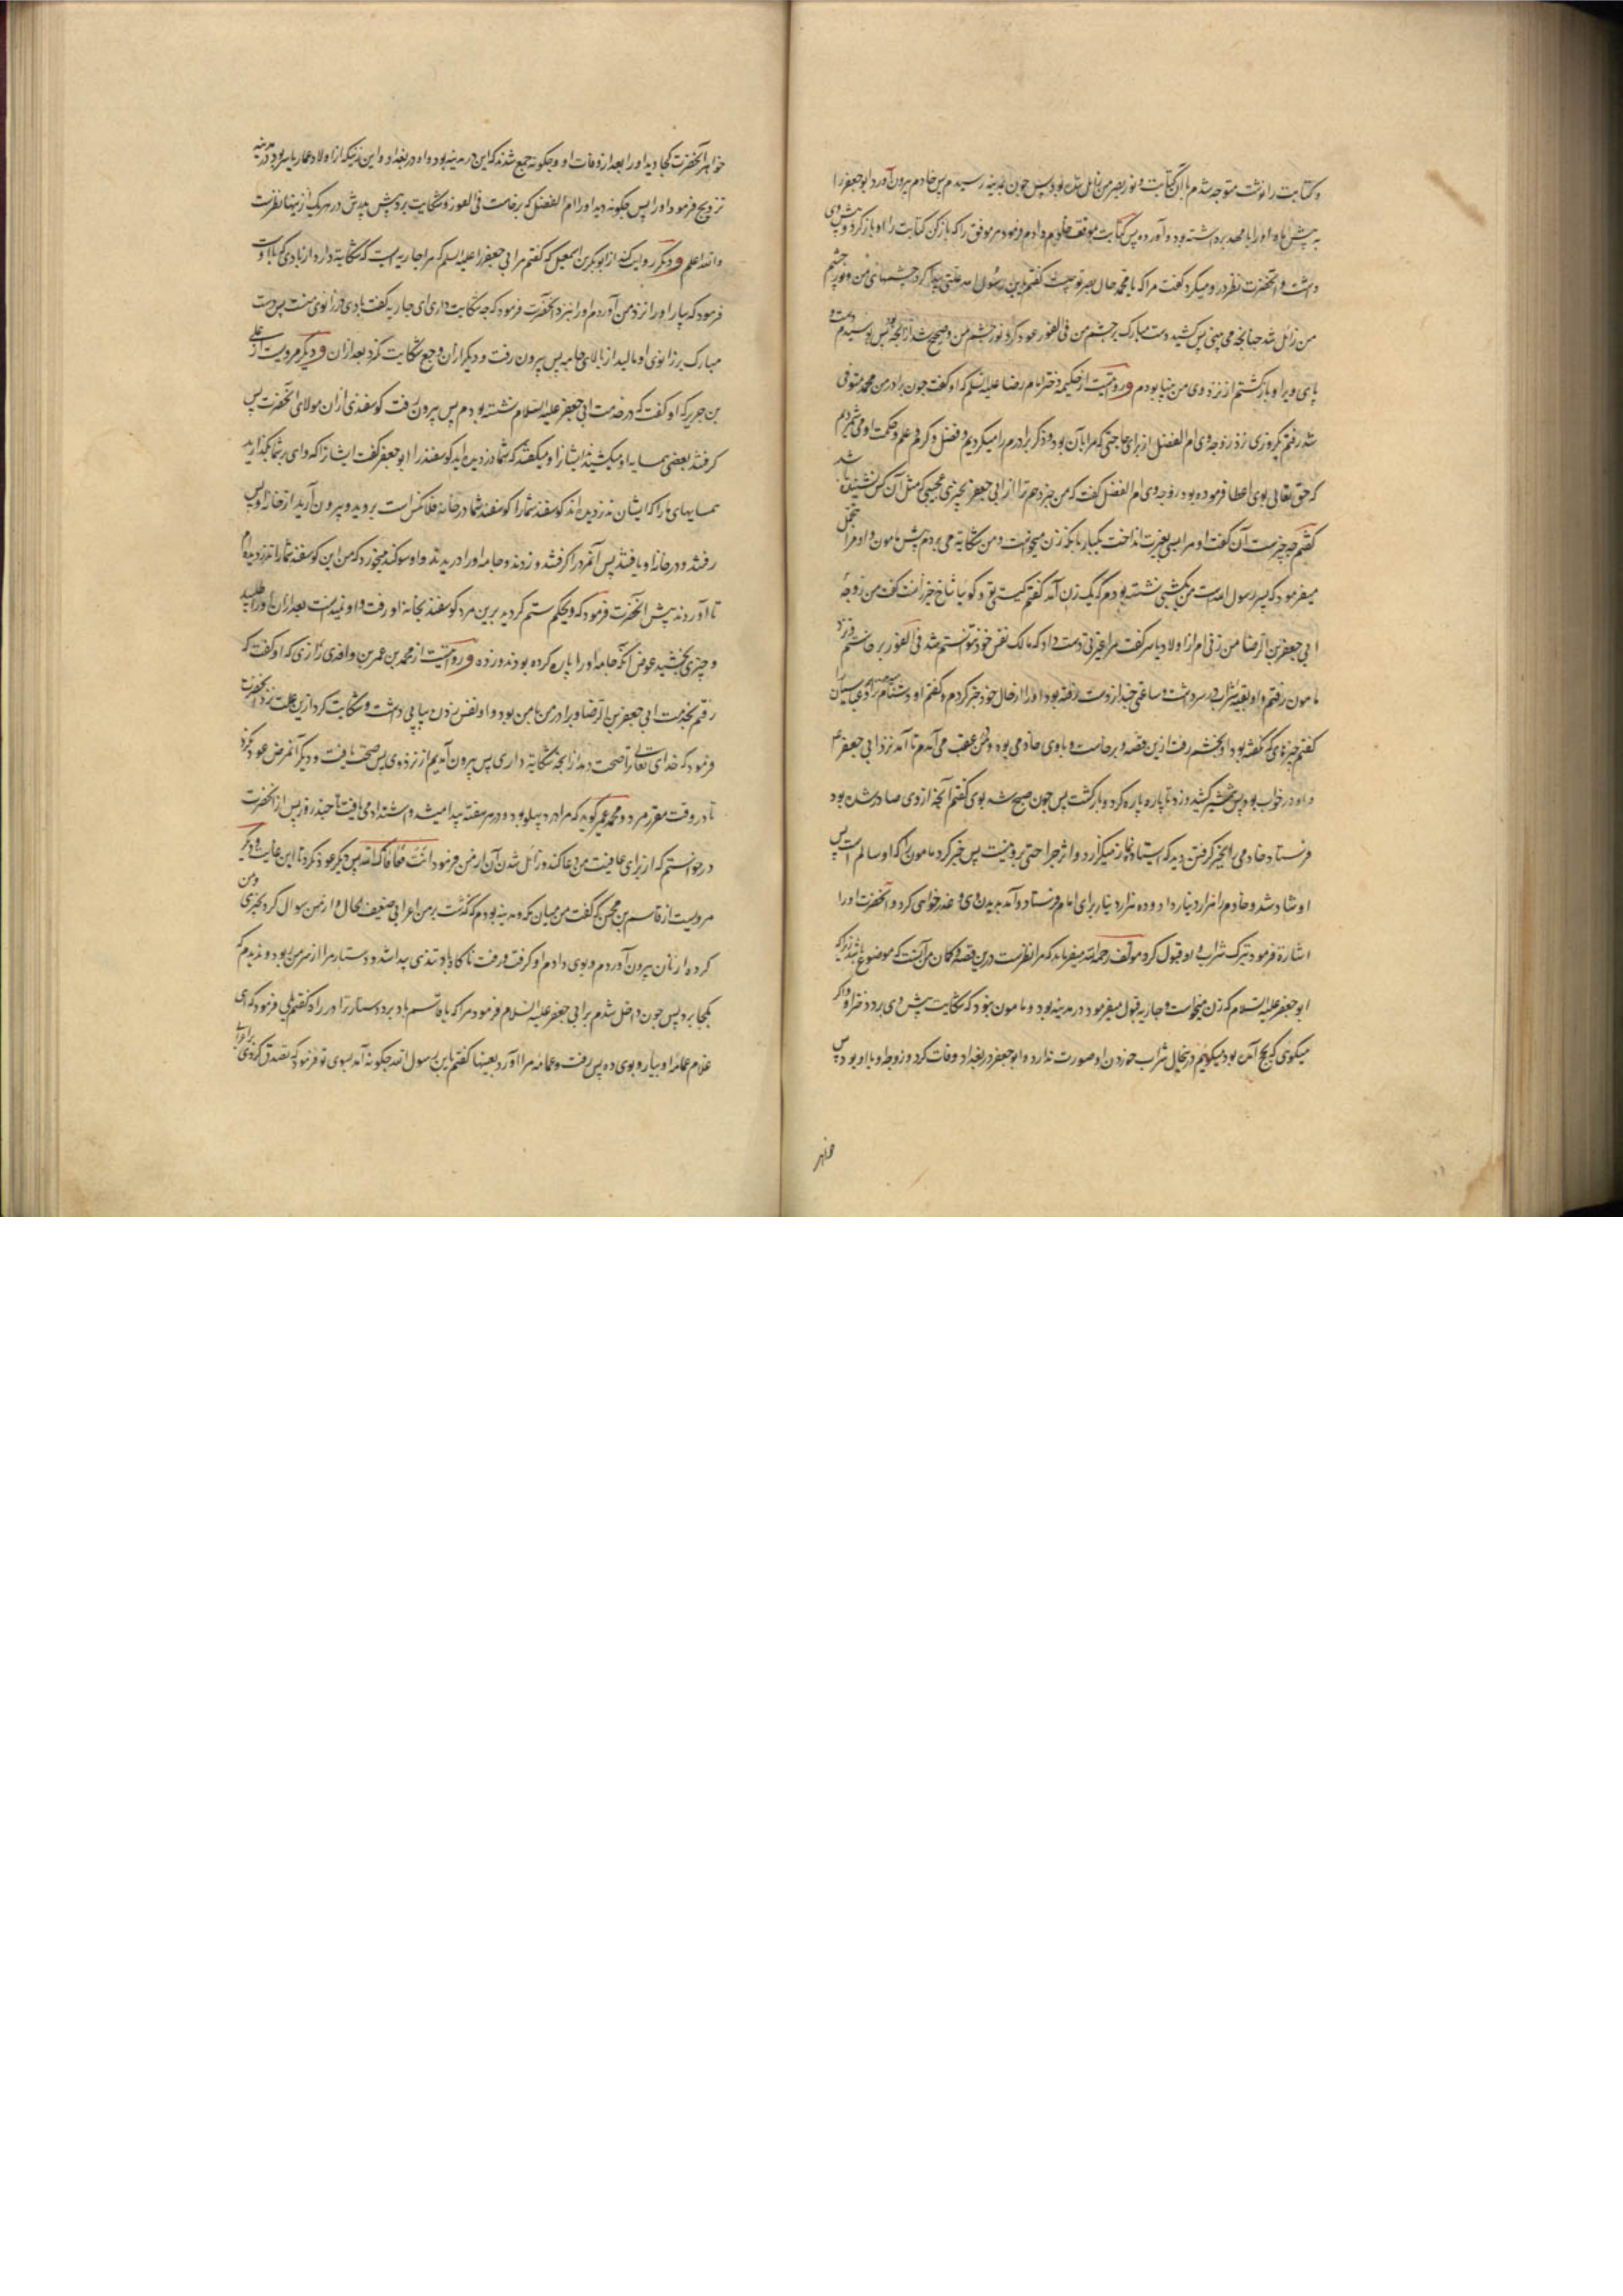 و کتابت را نوشت متوجه شدم با آن کتابت و نور بصر من زایل شده بود پس چون بمدینه رسیدم پس خادم بیرون آورد ابوجعفر را
پیش ما و او را بامهد برداشته بود و آورده پس کتابت بموفق خادم دادم و فرمود مر موفق را که باز کن کتابت را او باز کرد و پیش وی
داشت و آنحضرت نظر در او میکرد گفت مرا که یا محمد حال بصر تو چیست گفتم یابن رسول الله علتی پیدا کرد چشمهای من و نور چشم
من زائل شد چنانچه می بینی پس کشید دست مبارک بر چشم من فی الفور عود کرد نور چشم من و صحیح شد از آنچه بود پس بوسیدم دست و
پای ویرا و بازگشتم از نزد وی من بینا بودم و روایتست از حکیمه دختر امام رضا علیه السلم که او گفت چون برادر من محمد متوفی
شد رفتم یکروزی نزد زوجه وی ام الفضل از برای حاجتی که مرا بآن بود و ذکر برادرم را میکردیم و فضل و کرم و علم و حکمت او می شمردیم
که حق تعالی بوی اعطا فرموده بود زوجه وی ام الفضل گفت که من خبر دهم ترا از ابی جعفر بچیزی عجیبی که مثل آن کس نشنیده باشد
گفتم چه چیزست آن گفت او مرا بسی بغیرت انداخت یکبار بانکه زن میخواست و من شکایه می بردم پیش مامون و او مرا تحمل
میفرمود که پسر رسول الله است من یکشبی نشسته بودم که یک زن آمد گفتم کیستی تو گویا شاخ خیزرانست گفت من زوجه
ابی جعفر بن الرضا من زنی ام از اولاد یاسر گفت مرا غیرتی دست داد که مالک نفس خود نتوانستم شد فی الفور برخاستم نزد
مامون رفتم و او بقیه شراب در سر داشت و ساعتی چند از دست رفته بود او را از حال خود خبر کردم و گفتم او دشنام
گفتم چیزهای که نگفته بود او بخشم رفت ازین قصه و برخاست و با وی خادمی بود و من عقب می آمدم تا آمد نزد ابی جعفر ع
و او در خواب بود پس شمشیر کشید و زد تا پاره پاره کرد و بازگشت پس چون صبح شد بوی گفتم آنچه از وی صادر شده بود
فرستاد خادمی را بخبر گرفتن دید که ایستاده نماز میگزارد و اثر جراحتی برو نیست پس خبر کرد مامون را که او سالم است پس
او شاد شد و خادم را هزار دینار داد و ده هزار دینار برای امام فرستاد و آمد بدیدن وی و عذرخواهی کرد و آنحضرت او را
اشاره فرمود بترک شراب و او قبول کرد مولف رحمه الله میفرماید که مرا نظرست درین قصه و گمان من آنست که موضوع باشد زیرا که
ابوجعفر علیه السلام که زن میخواست و جاریه قبول میفرمود در مدینه بود و مامون نبود که شکایت پیش وی برد دختر او و اگر
میگوی که بحج آمده بود میگویم درینحال شراب خوردن او صورت ندارد و ابوجعفر در بغداد وفات کرد و زوجه او با او بود پس
خواهر
خواهر آنحضرت کجا دید او را بعد از وفات او و چگونه جمع شدند که این در مدینه بود و او در بغداد و این زنیکه از اولاد عمار یاسر بود در مدینه
تزویج فرمود او را پس چگونه دید او را ام الفضل که برخاست فی الفور و شکایت برد پیش پدرش در هر یک ازینها نظرست
و الله اعلم و دیگر روایت کند از ابوبکر بن اسمعیل که گفتم مر ابی جعفر را علیه السلم که مرا جاریه ایست که شکایت دارد از بادی که با اوست
فرمود که بیار او را نزد من آوردم او را نزد آنحضرت فرمود که چه شکایت داری ای جاریه گفت بادی در زانوی منست پس دست
مبارک بر زانوی او مالید از بالای جامه پس بیرون رفت و دیگر از آن وجع شکایت نکرد بعد از آن و دیگر مرویست از علی
بن جریر که او گفت که در خدمت ابی جعفر علیه السلام نشسته بودم پس بیرون رفت گوسفندی از آن مولای آنحضرت پس
گرفتند بعضی همسایه او میکشیدند ایشانرا و میگفتند که شما دزدیده اید گوسفند را ابوجعفر گفت ایشانرا که وای بر شما بگذارید
همسایهای ما را که ایشان ندزدیده اند گوسفند شما را گوسفند شما در خانه فلان کس است بروید و بیرون آرید از خانه او پس
رفتند و در خانه او یافتند پس آنمرد را گرفتند و زدند و جامه او را دریدند و او سوگند میخورد که من این گوسفند شما را ندزدیده ام
تا آوردند پیش آنحضرت فرمود که ویحکم ستم کردید برین مرد گوسفند بخانه او رفت و او نمیدانست بعد از آن او را طلبید
و چیزی بخشید عوض آنکه جامه او را پاره کرده بودند و زده و روایتست از محمد بن عمر بن واقدی رازی که او گفت که
رفتم بخدمت ابی جعفر بن الرضا و برادر من با من بود و او نفس زدن پیاپی داشت و شکایت کرد ازین علت نزد آنحضرت
فرمود که خدای تعالی ترا صحت دهد از آنچه شکایه داری پس بیرون آمدیم از نزد وی پس صحت یافت و دیگر آنمرض عود نکرد
تا در وقت مقرر مرد و محمد عمر گوید که مرا درد پهلو بود و در هر هفته پیدا میشد و اشتداد می یافت تا چند روز پس از آنحضرت
درخواستم که از برای عافیت من دعا کند و زائل شدن آن از من فرمود و انت فعافاک الله پس دیگر عود نکرد تا این غایت و دیگر
مرویست از قاسم بن محسن که گفت من میان مکه و مدینه بودم که گذشت بر من اعرابی ضعیف الحال و از من سوال کرد بچیزی و من
گرده از نان بیرون آوردم و بوی دادم او گرفت و رفت ناگاه باد تندی پیدا شد و دستار مرا از سر من ربود و ندیدم که
بکجا برد پس چون داخل شدم بر ابی جعفر علیه السلام فرمود مرا که یا قاسم باد برد دستار ترا در راه گفتم بلی فرمود که ای
غلام عمامه او بیار و بوی ده پس رفت و عمامه مرا آورد بعینها گفتم یابن رسول الله چگونه آمد بسوی تو فرمود که تصدق کردی بر اعرابی